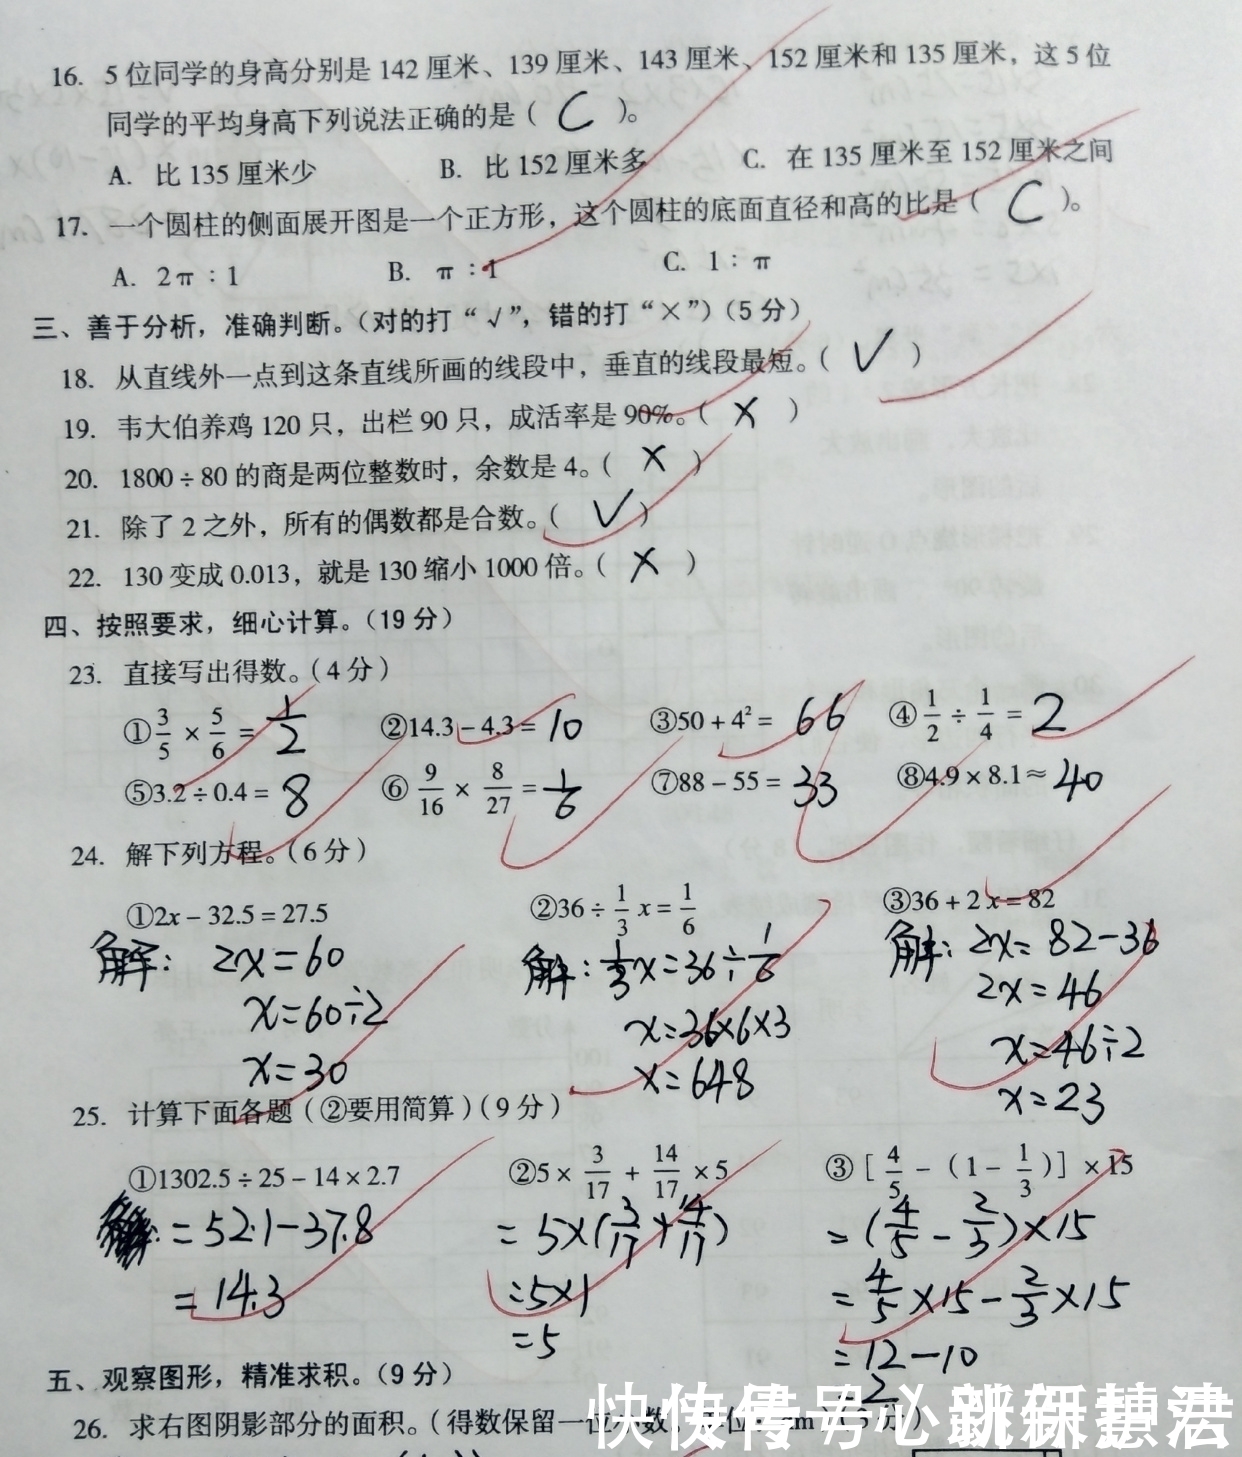 16. 5位同学的身高分别是142厘米、139厘米、143厘米、152厘米和135厘米，这5位
同学的平均身高下列说法正确的是（ C ）。
A. 比135厘米少 B. 比152厘米多 C. 在135厘米至152厘米之间
17. 一个圆柱的侧面展开图是一个正方形，这个圆柱的底面直径和高的比是（ C ）。
A. 2π：1 B. π：1 C. 1：π
三、善于分析，准确判断。（对的打“√”，错的打“×”）（5分）
18. 从直线外一点到这条直线所画的线段中，垂直的线段最短。（ √ ）
19. 韦大伯养鸡120只，出栏90只，成活率是90%。（ × ）
20. 1800÷80的商是两位整数时，余数是4。（ × ）
21. 除了2之外，所有的偶数都是合数。（ √ ）
22. 130变成0.013，就是130缩小1000倍。（ × ）
四、按照要求，细心计算。（19分）
23. 直接写出得数。（4分）
①3/5×5/6=1/2 ②14.3-4.3=10 ③50+4²=66 ④1/2÷1/4=2
⑤3.2÷0.4=8 ⑥9/16×8/27=1/6 ⑦88-55=33 ⑧4.9×8.1≈40
24. 解下列方程。（6分）
①2x-32.5=27.5 ②36÷1/3x=1/6 ③36+2x=82
解：2x=60 解：1/3x=36÷1/6 解：2x=82-36
x=60÷2 x=36×6×3 2x=46
x=30 x=648 x=46÷2
x=23
25. 计算下面各题（②要用简算）（9分）
①1302.5÷25-14×2.7 ②5×3/17+14/17×5 ③[4/5-(1-1/3)]×15
=52.1-37.8 =5×(3/17+14/17) =(4/5-2/3)×15
=14.3 =5×1 =4/5×15-2/3×15
=5 =12-10
=2
五、观察图形，精准求积。（9分）
26. 求右图阴影部分的面积。（得数保留一位